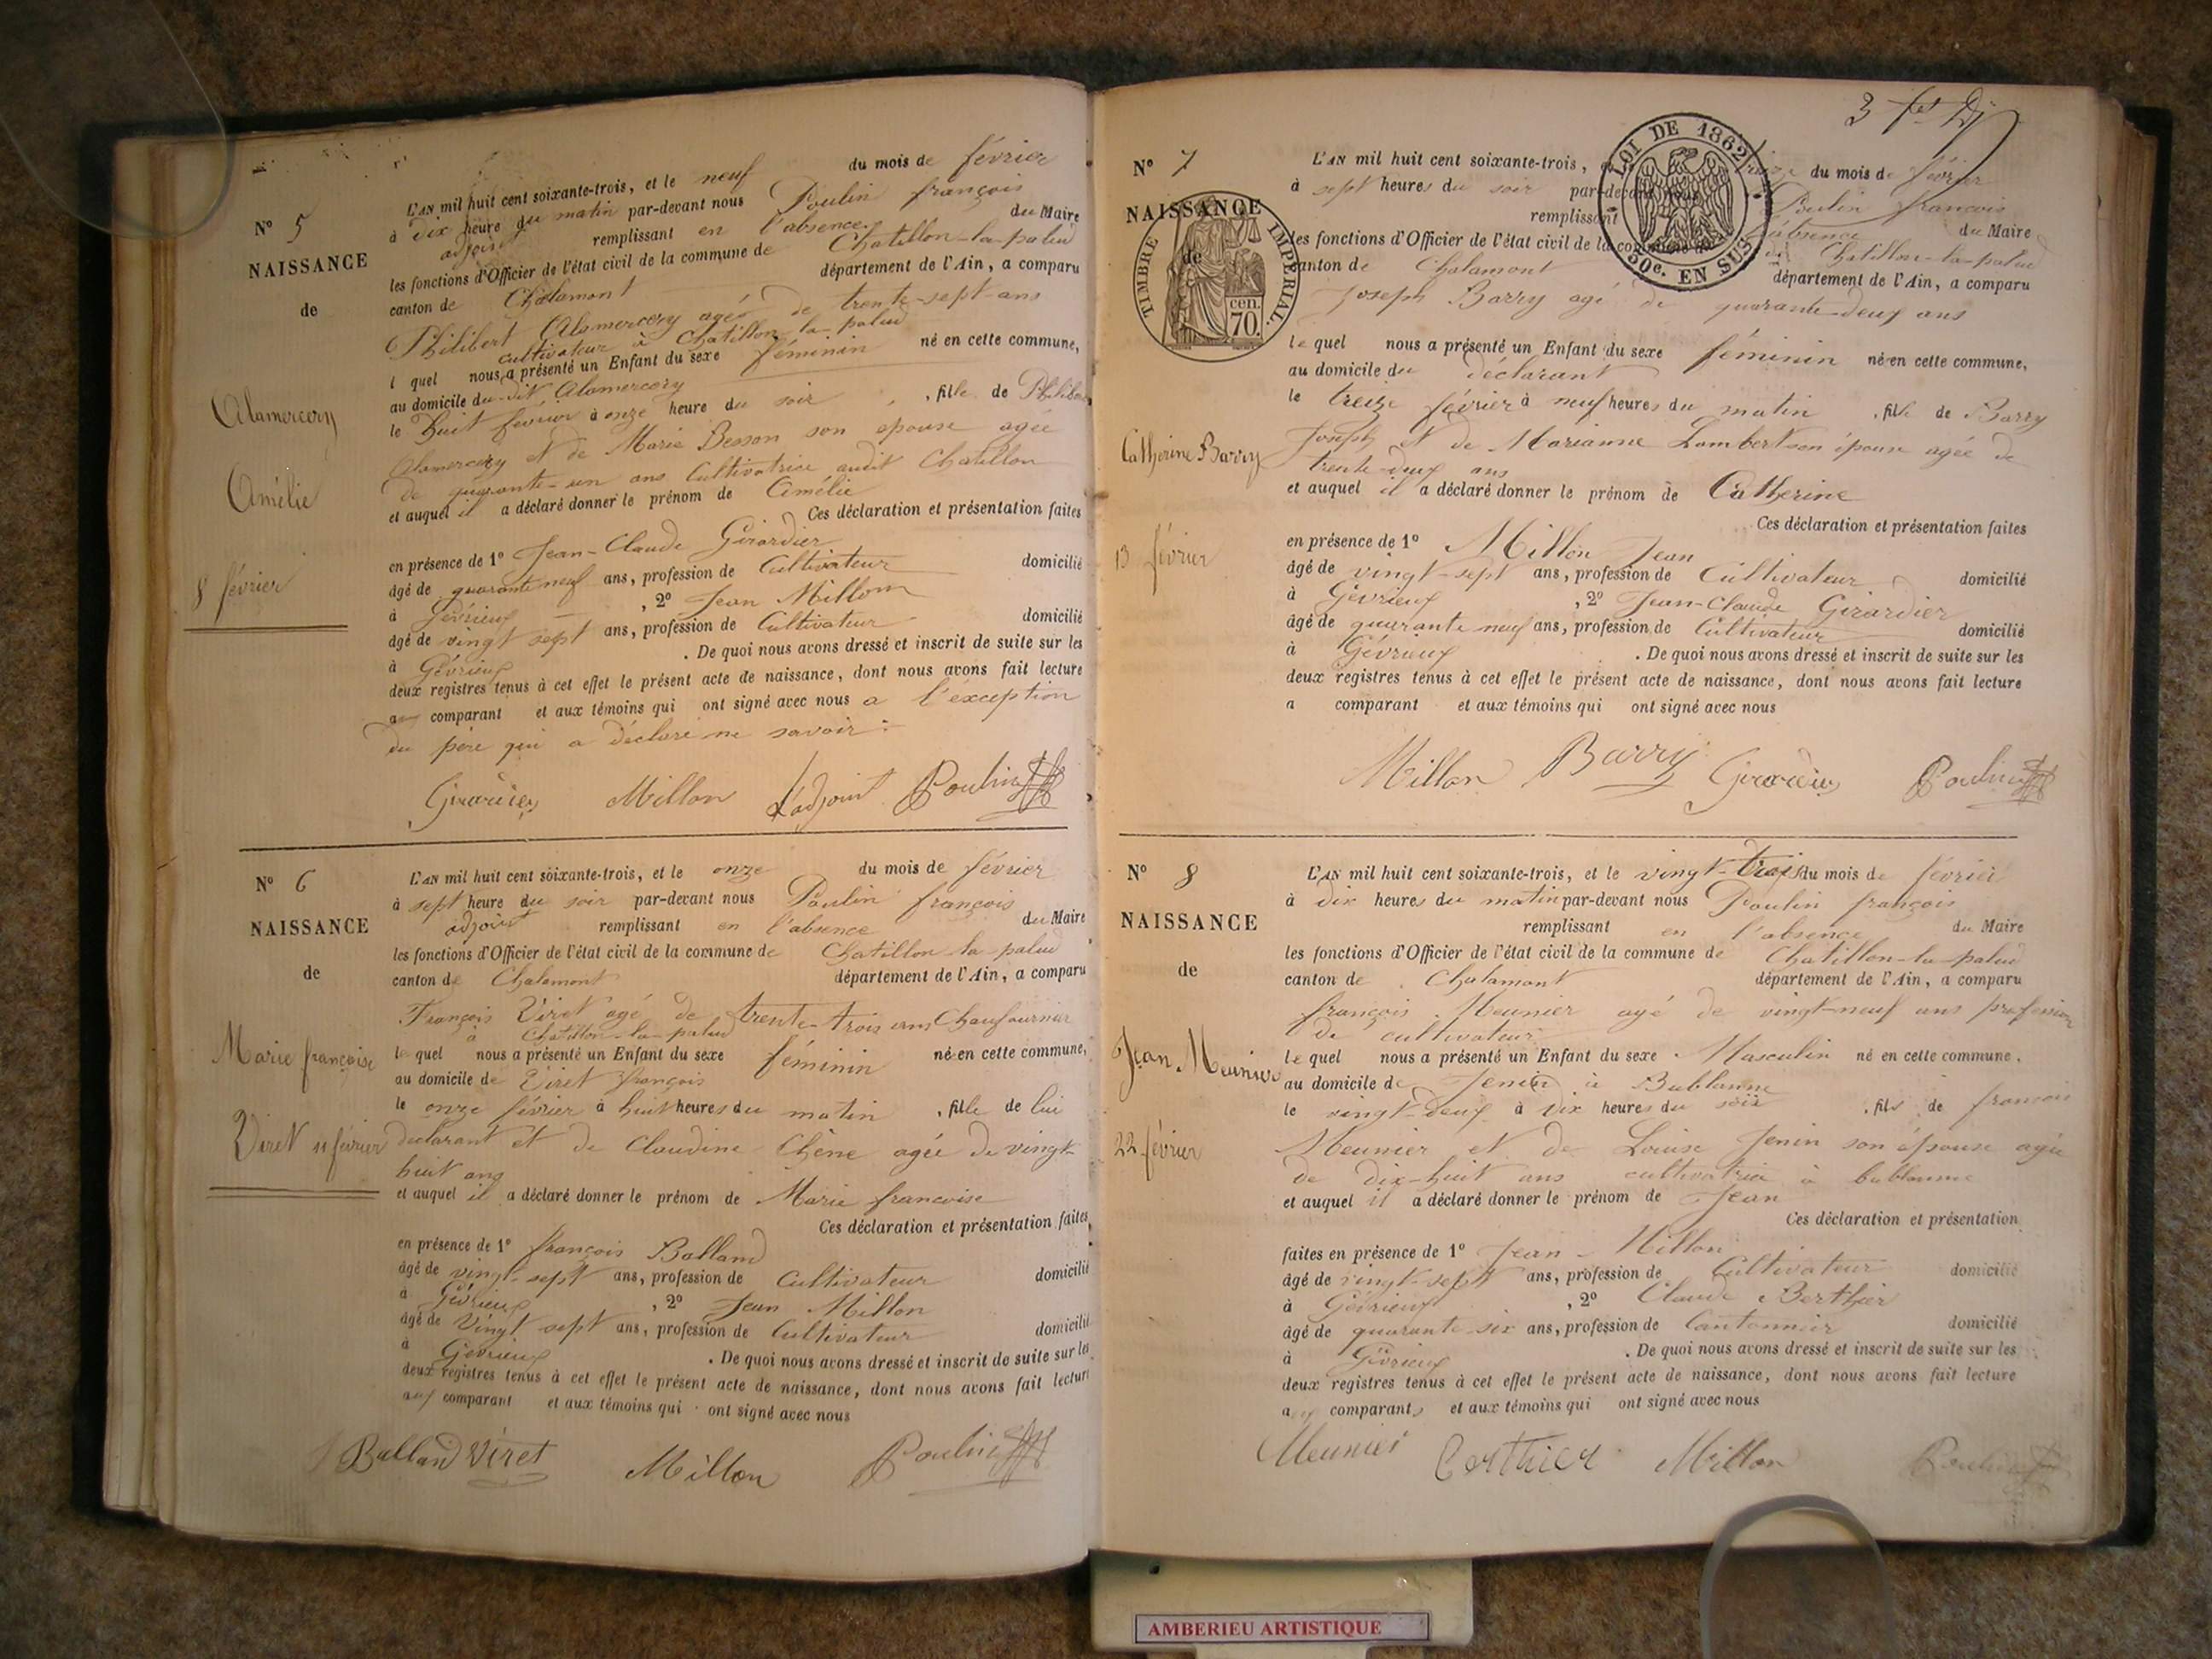 L'AN mil huit cent soixante-trois, et le neuf du mois de février
à dix heure du matin par-devant nous Poulin françois
adjoint remplissant en l'absence du Maire
les fonctions d'Officier de l'état civil de la commune de Chatillon-la-palud
canton de Chalamont département de l'Ain, a comparu
Philibert Alamercery agé de trente-sept ans
cultivateur à Chatillon-la-palud
l quel nous a présenté un Enfant du sexe féminin né en cette commune,
au domicile du dit Alamercery
le huit fevrier à onze heure du soir , fille de Philibert
Alamercery et de Marie Besson son épouse agée
de quarante-un ans Cultivatrice audit Chatillon
et auquel il a déclaré donner le prénom de Amélie
Ces déclaration et présentation faites
en présence de 1º Jean-Claude Girardier
âgé de quarante neuf ans, profession de Cultivateur domicilié
à Gévrieux , 2º Jean Millon
âgé de vingt sept ans, profession de Cultivateur domicilié
à Gévrieux . De quoi nous avons dressé et inscrit de suite sur les
deux registres tenus à cet effet le présent acte de naissance, dont nous avons fait lecture
au comparant et aux témoins qui ont signé avec nous a l'exception
du père qui a déclaré ne savoir
Girardier Millon L'adjoint Poulin
Nº 5
NAISSANCE
de
Alamercery
Amélie
8 février
Nº 6
NAISSANCE
de
Marie françoise
Viret 11 février
L'AN mil huit cent soixante-trois, et le onze du mois de février
à sept heure du soir par-devant nous Poulin françois
adjoint remplissant en l'absence du Maire
les fonctions d'Officier de l'état civil de la commune de Chatillon-la-palud
canton de Chalamont département de l'Ain, a comparu
François Viret agé de trente-trois ans Chaufournier
à Chatillon-la-palud
le quel nous a présenté un Enfant du sexe féminin né en cette commune,
au domicile de Viret françois
le onze février à huit heures du matin , fille de lui
déclarant et de Claudine Chêne agée de vingt-
huit ans
et auquel il a déclaré donner le prénom de Marie francoise
Ces déclaration et présentation faites
en présence de 1º françois Balland
âgé de vingt-sept ans, profession de Cultivateur domicilié
à Gévrieux , 2º Jean Millon
âgé de Vingt sept ans, profession de Cultivateur domicilié
à Gévrieux . De quoi nous avons dressé et inscrit de suite sur les
deux registres tenus à cet effet le présent acte de naissance, dont nous avons fait lecture
aux comparant et aux témoins qui ont signé avec nous
Balland Viret Millon Poulin
3
LOI DE 1862
50c. EN SUS
TIMBRE IMPERIAL.
cen.
70.
Nº 7
NAISSANCE
de
Catherine Barry
13 février
L'AN mil huit cent soixante-trois, et le treize du mois de février
à sept heures du soir par-devant nous Poulin francois
remplissant l'absence du Maire
les fonctions d'Officier de l'état civil de la commune de Chatillon-la-palud
canton de Chalamont département de l'Ain, a comparu
Joseph Barry agé de quarante-deux ans
le quel nous a présenté un Enfant du sexe féminin né en cette commune,
au domicile du déclarant
le treize février à neuf heures du matin , fille de Barry
Joseph et de Marianne Lambert son épouse agée de
trente-deux ans
et auquel il a déclaré donner le prénom de Catherine
Ces déclaration et présentation faites
en présence de 1º Millon Jean
âgé de vingt-sept ans, profession de Cultivateur domicilié
à Gévrieux , 2º Jean-Claude Girardier
âgé de quarante neuf ans, profession de Cultivateur domicilié
à Gévrieux . De quoi nous avons dressé et inscrit de suite sur les
deux registres tenus à cet effet le présent acte de naissance, dont nous avons fait lecture
a comparant et aux témoins qui ont signé avec nous
Millon Barry Girardier Poulin
Nº 8
NAISSANCE
de
Jean Meunier
22 février
L'AN mil huit cent soixante-trois, et le vingt-trois du mois de février
à dix heures du matin par-devant nous Poulin françois
remplissant en l'absence du Maire
les fonctions d'Officier de l'état civil de la commune de Chatillon-la-palud
canton de Chalamont département de l'Ain, a comparu
françois Meunier agé de vingt-neuf ans profession
de cultivateur
le quel nous a présenté un Enfant du sexe Masculin né en cette commune.
au domicile de Jenin à Bublanne
le vingt-deux à dix heures du soir , fils de francois
Meunier et de Louise Jenin son épouse agée
de dix-huit ans cultivatrice à bublanne
et auquel il a déclaré donner le prénom de Jean
Ces déclaration et présentation
faites en présence de 1º Jean Millon
âgé de vingt-sept ans, profession de Cultivateur domicilié
à Gévrieux , 2º Claude Berthier
âgé de quarante-six ans, profession de Cantonnier domicilié
à Gévrieux . De quoi nous avons dressé et inscrit de suite sur les
deux registres tenus à cet effet le présent acte de naissance, dont nous avons fait lecture
aux comparants et aux témoins qui ont signé avec nous
Meunier Berthier Millon Poulin
AMBERIEU ARTISTIQUE